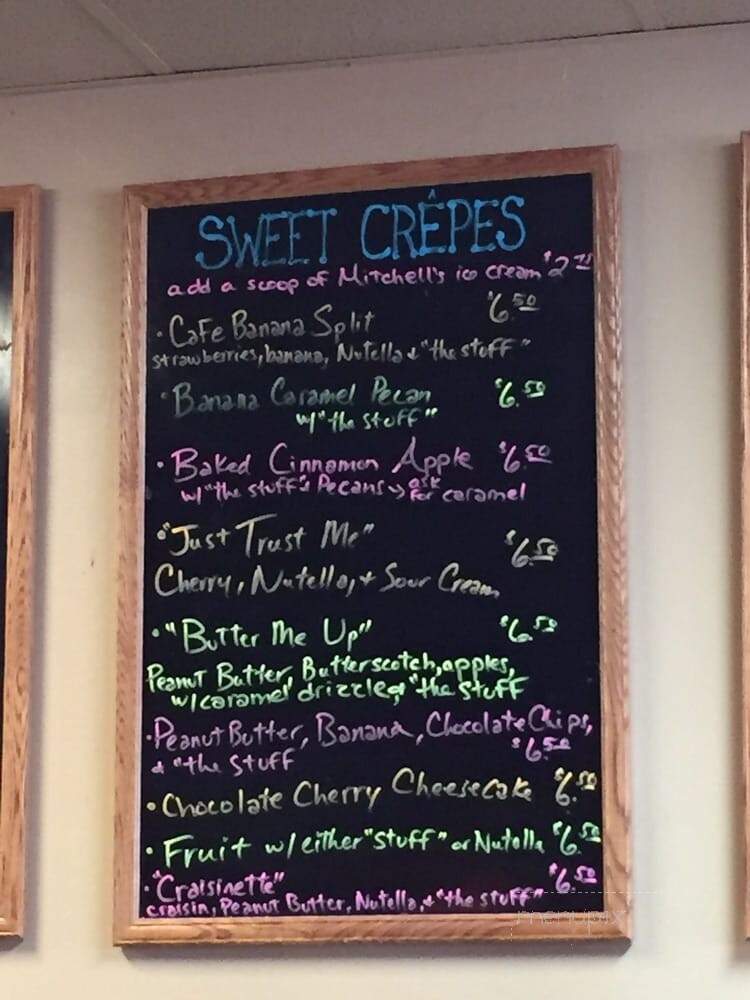 SWEET CRÊPES
add a scoop of Mitchell's ice cream $2
• Cafe Banana Split $6.50
strawberries, banana, Nutella + "the stuff"
• Banana Caramel Pecan $6.50
w/ "the stuff"
• Baked Cinnamon Apple $6.50
w/ "the stuff" & Pecans → ask for caramel
• "Just Trust Me" $6.50
Cherry, Nutella, + Sour Cream
• "Butter Me Up" $6.50
Peanut Butter, Butterscotch, apples,
w/ caramel drizzle & "the stuff
• Peanut Butter, Banana, Chocolate Chips,
$6.50
& "the stuff
• Chocolate Cherry Cheesecake $6.50
• Fruit w/ either "stuff" or Nutella $6.50
• "Craisinette" $6.50
craisin, Peanut Butter, Nutella, + "the stuff"